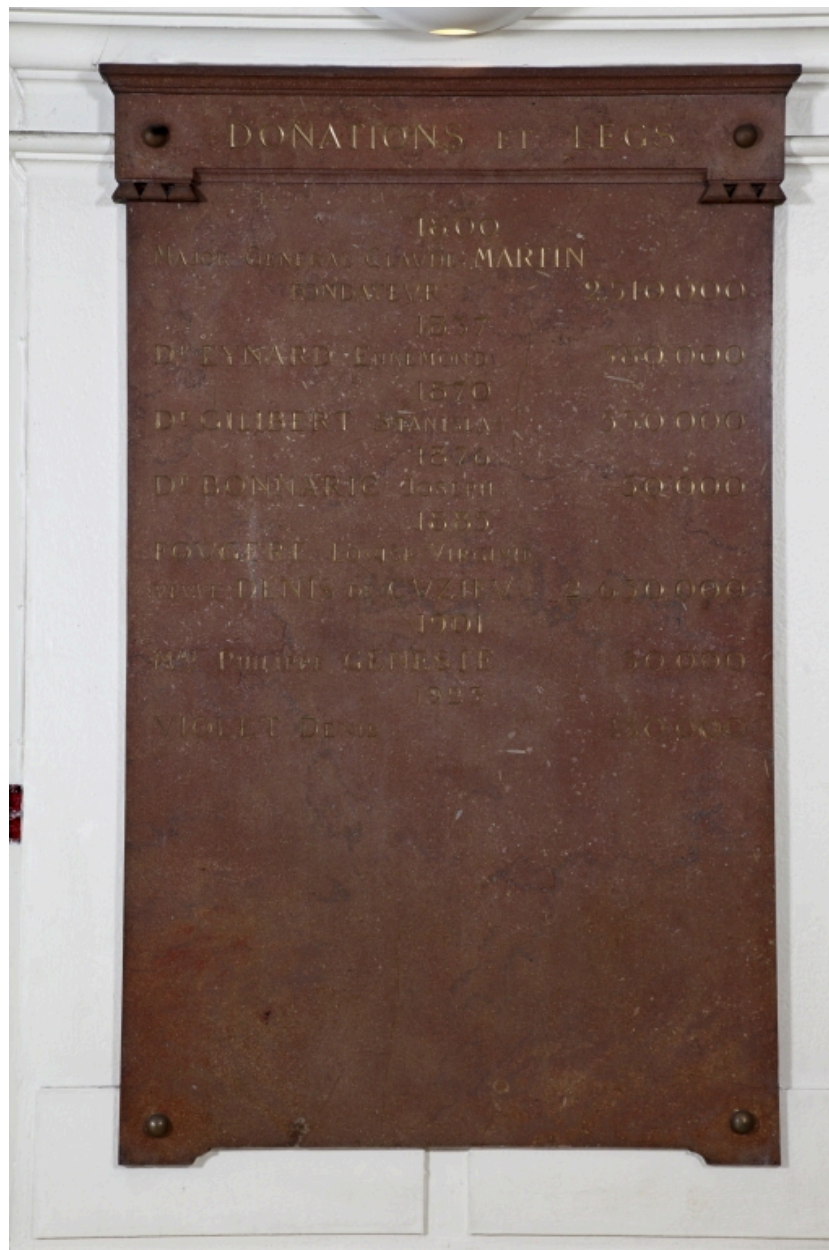 DONATIONS ET LEGS
1800
MAJOR GÉNÉRAL CLAUDE MARTIN
FONDATEUR 2.510.000
1837
Dr EYNARD ENNEMOND
1870
Dr GILIBERT STANISLAS 350.000
1876
Dr BONNARIC JOSEPH 50.000
1885
LOUISE VIRGINIE
VEUVE DENIS DE CUZIEU
1901
GENESTE 50.000
VIOLET DENIS